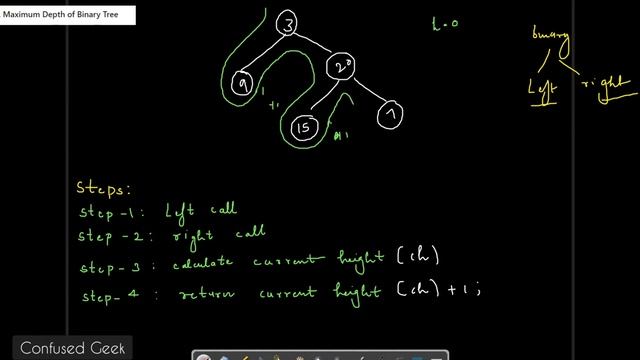 Maximum Depth of Binary Tree
3
h=0
binary
20
9
1
Left
right
+1
15
7
0+1
Steps:
Step-1: Left call
Step-2: right call
Step-3: calculate current height (ch)
Step-4: return current height (ch) +1;
Confused Geek